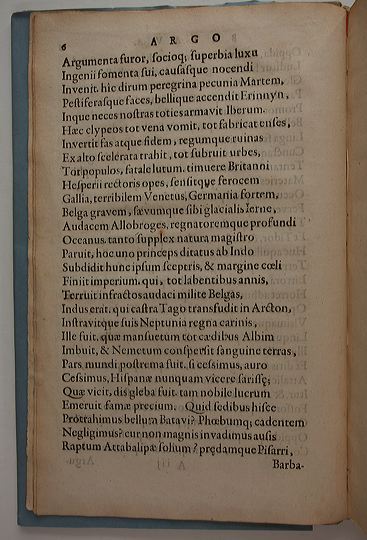 6 ARGO
Argumenta furor, socioq; superbia luxu
Ingenii fomenta sui, causasque nocendi
Invenit. hîc dirum peregrina pecunia Martem,
Pestiferasque faces, bellique accendit Erinnyn,
Inque neces nostras toties armavit Iberum.
Hæc clypeos tot vena vomit, tot fabricat enses,
Invertit fas atque fidem, regumque ruinas
Ex alto scelerata trahit, tot subruit urbes,
Tot populos, fatale lutum. timuere Britanni
Hesperii rectoris opes, sensitque ferocem
Gallia, terribilem Venetus, Germania fortem,
Belga gravem, sævumque sibi glacialis Ierne,
Audacem Allobroges, regnatoremque profundi
Oceanus. tanto supplex natura magistro
Paruit, hoc uno princeps ditatus ab Indo
Subdidit hunc ipsum sceptris, & margine cœli
Finiit imperium. qui, tot labentibus annis,
Terruit infractos audaci milite Belgas,
Indus erat. qui castra Tago transfudit in Arcton,
Instravitque suis Neptunia regna carinis,
Ille fuit. quæ mansuetum tot cædibus Albim
Imbuit, & Nemetum conspersit sanguine terras,
Pars mundi postrema fuit. si cessimus, auro
Cessimus, Hispanæ nunquam vicere sarissę;
Quæ vicit, dis gleba fuit. tam nobile lucrum
Emeruit famæ precium. Quid sedibus hisce
Protrahimus bellum Batavi? Phœbumq; cadentem
Negligimus? cur non magnis invadimus ausis
Raptum Attabalipæ solium? prędamque Pisarri,
Barba-